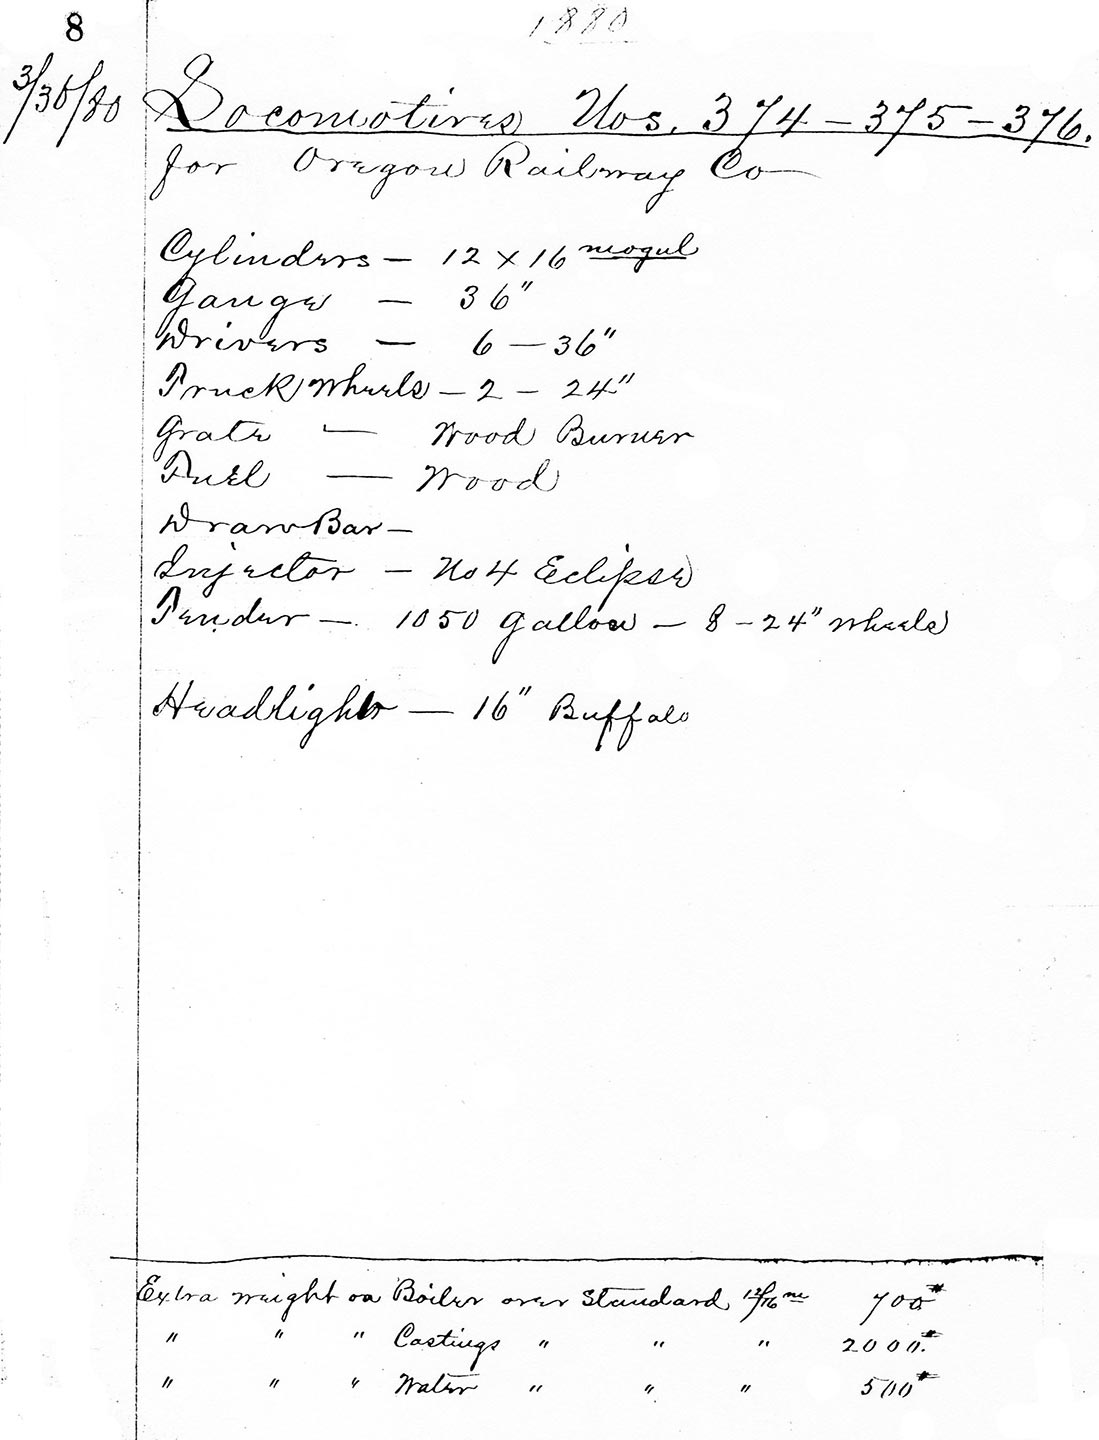 8
1880
3/30/80
Locomotives Nos. 374 – 375 – 376.
for Oregon Railway Co
Cylinders – 12 x 16 mogul
Gauge – 36"
Drivers – 6 – 36"
Truck Wheels – 2 – 24"
Grate – Wood Burner
Fuel – Wood
Draw Bar –
Injector – No 4 Eclipse
Tender – 1050 Gallon – 8 – 24" Wheels
Headlight – 16" Buffalo
Extra weight on Boiler over Standard 12/16 m 700#
" " " Castings " " " 2000.#
" " " Water " " " 500#